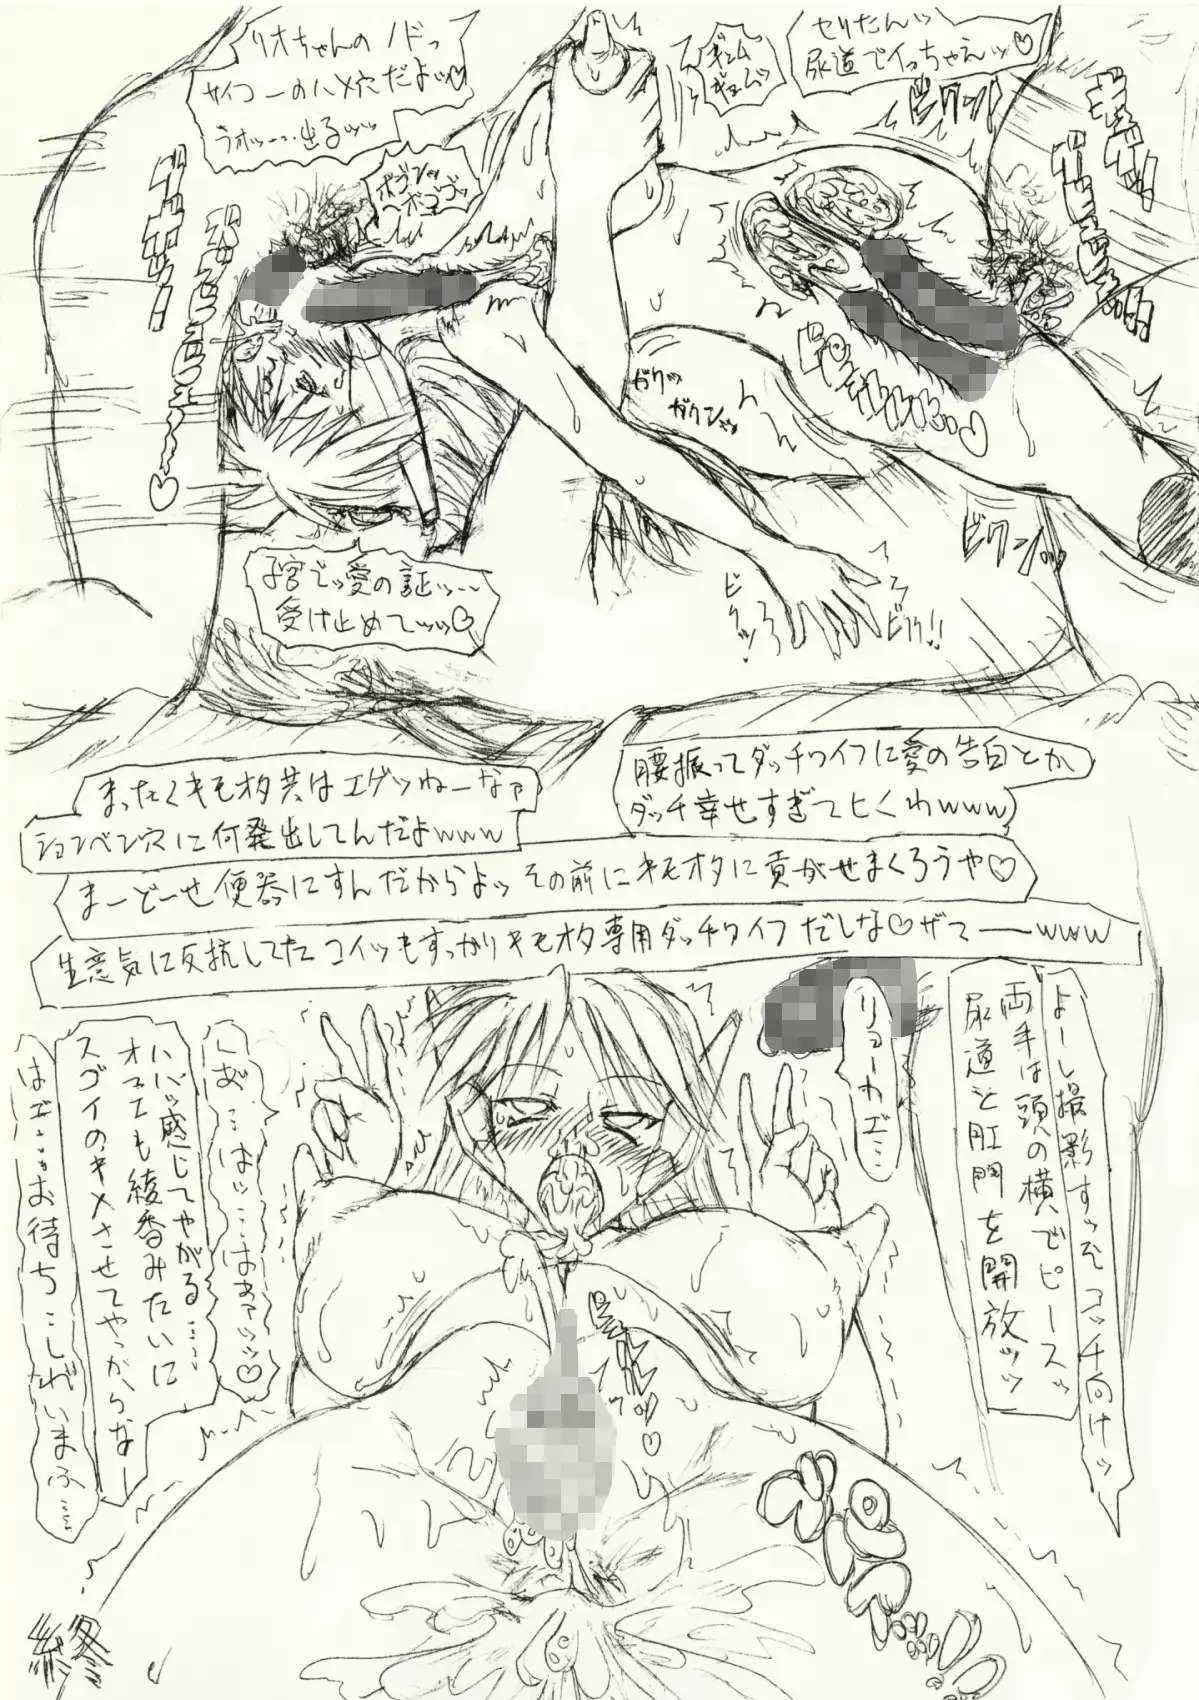 セリたんッ
尿道でイっちゃえッ♡
リオちゃんのノドっ
サイコーのハメ穴だよッ♡
うオッ……出るッッ
ギュム
ギュムッ
ボゴンッ
ボゴゴッ
ビクンッ
ガクッ
ガクンッ
ビクンッ
ビクッ
ビクッ!!
子宮でッ愛の証ッ……
受け止めてッッ♡
腰振ってダッチワイフに愛の告白とか
ダッチ幸せすぎてヒくわwww
まったくキモオタ共はエゲツねーなァ
ションベン穴に何発出してんだよwww
まーどーせ便器にすんだからよッ その前にキモオタに貢がせまくろうや♡
生意気に反抗してたコイツもすっかりキモオタ専用ダッチワイフだしな♡ザマーwww
よーし撮影すっぞ コッチ向けッ
両手は頭の横でピースッ
尿道と肛門を開放ッッ
りょーかエ…
しあ…はッ…はぁァッッ♡
ハハッ感じてやがる……
オマエも綾香みたいに
スゴイのキメさせてやっからなー
はエ……お待ちこしれいまふ……